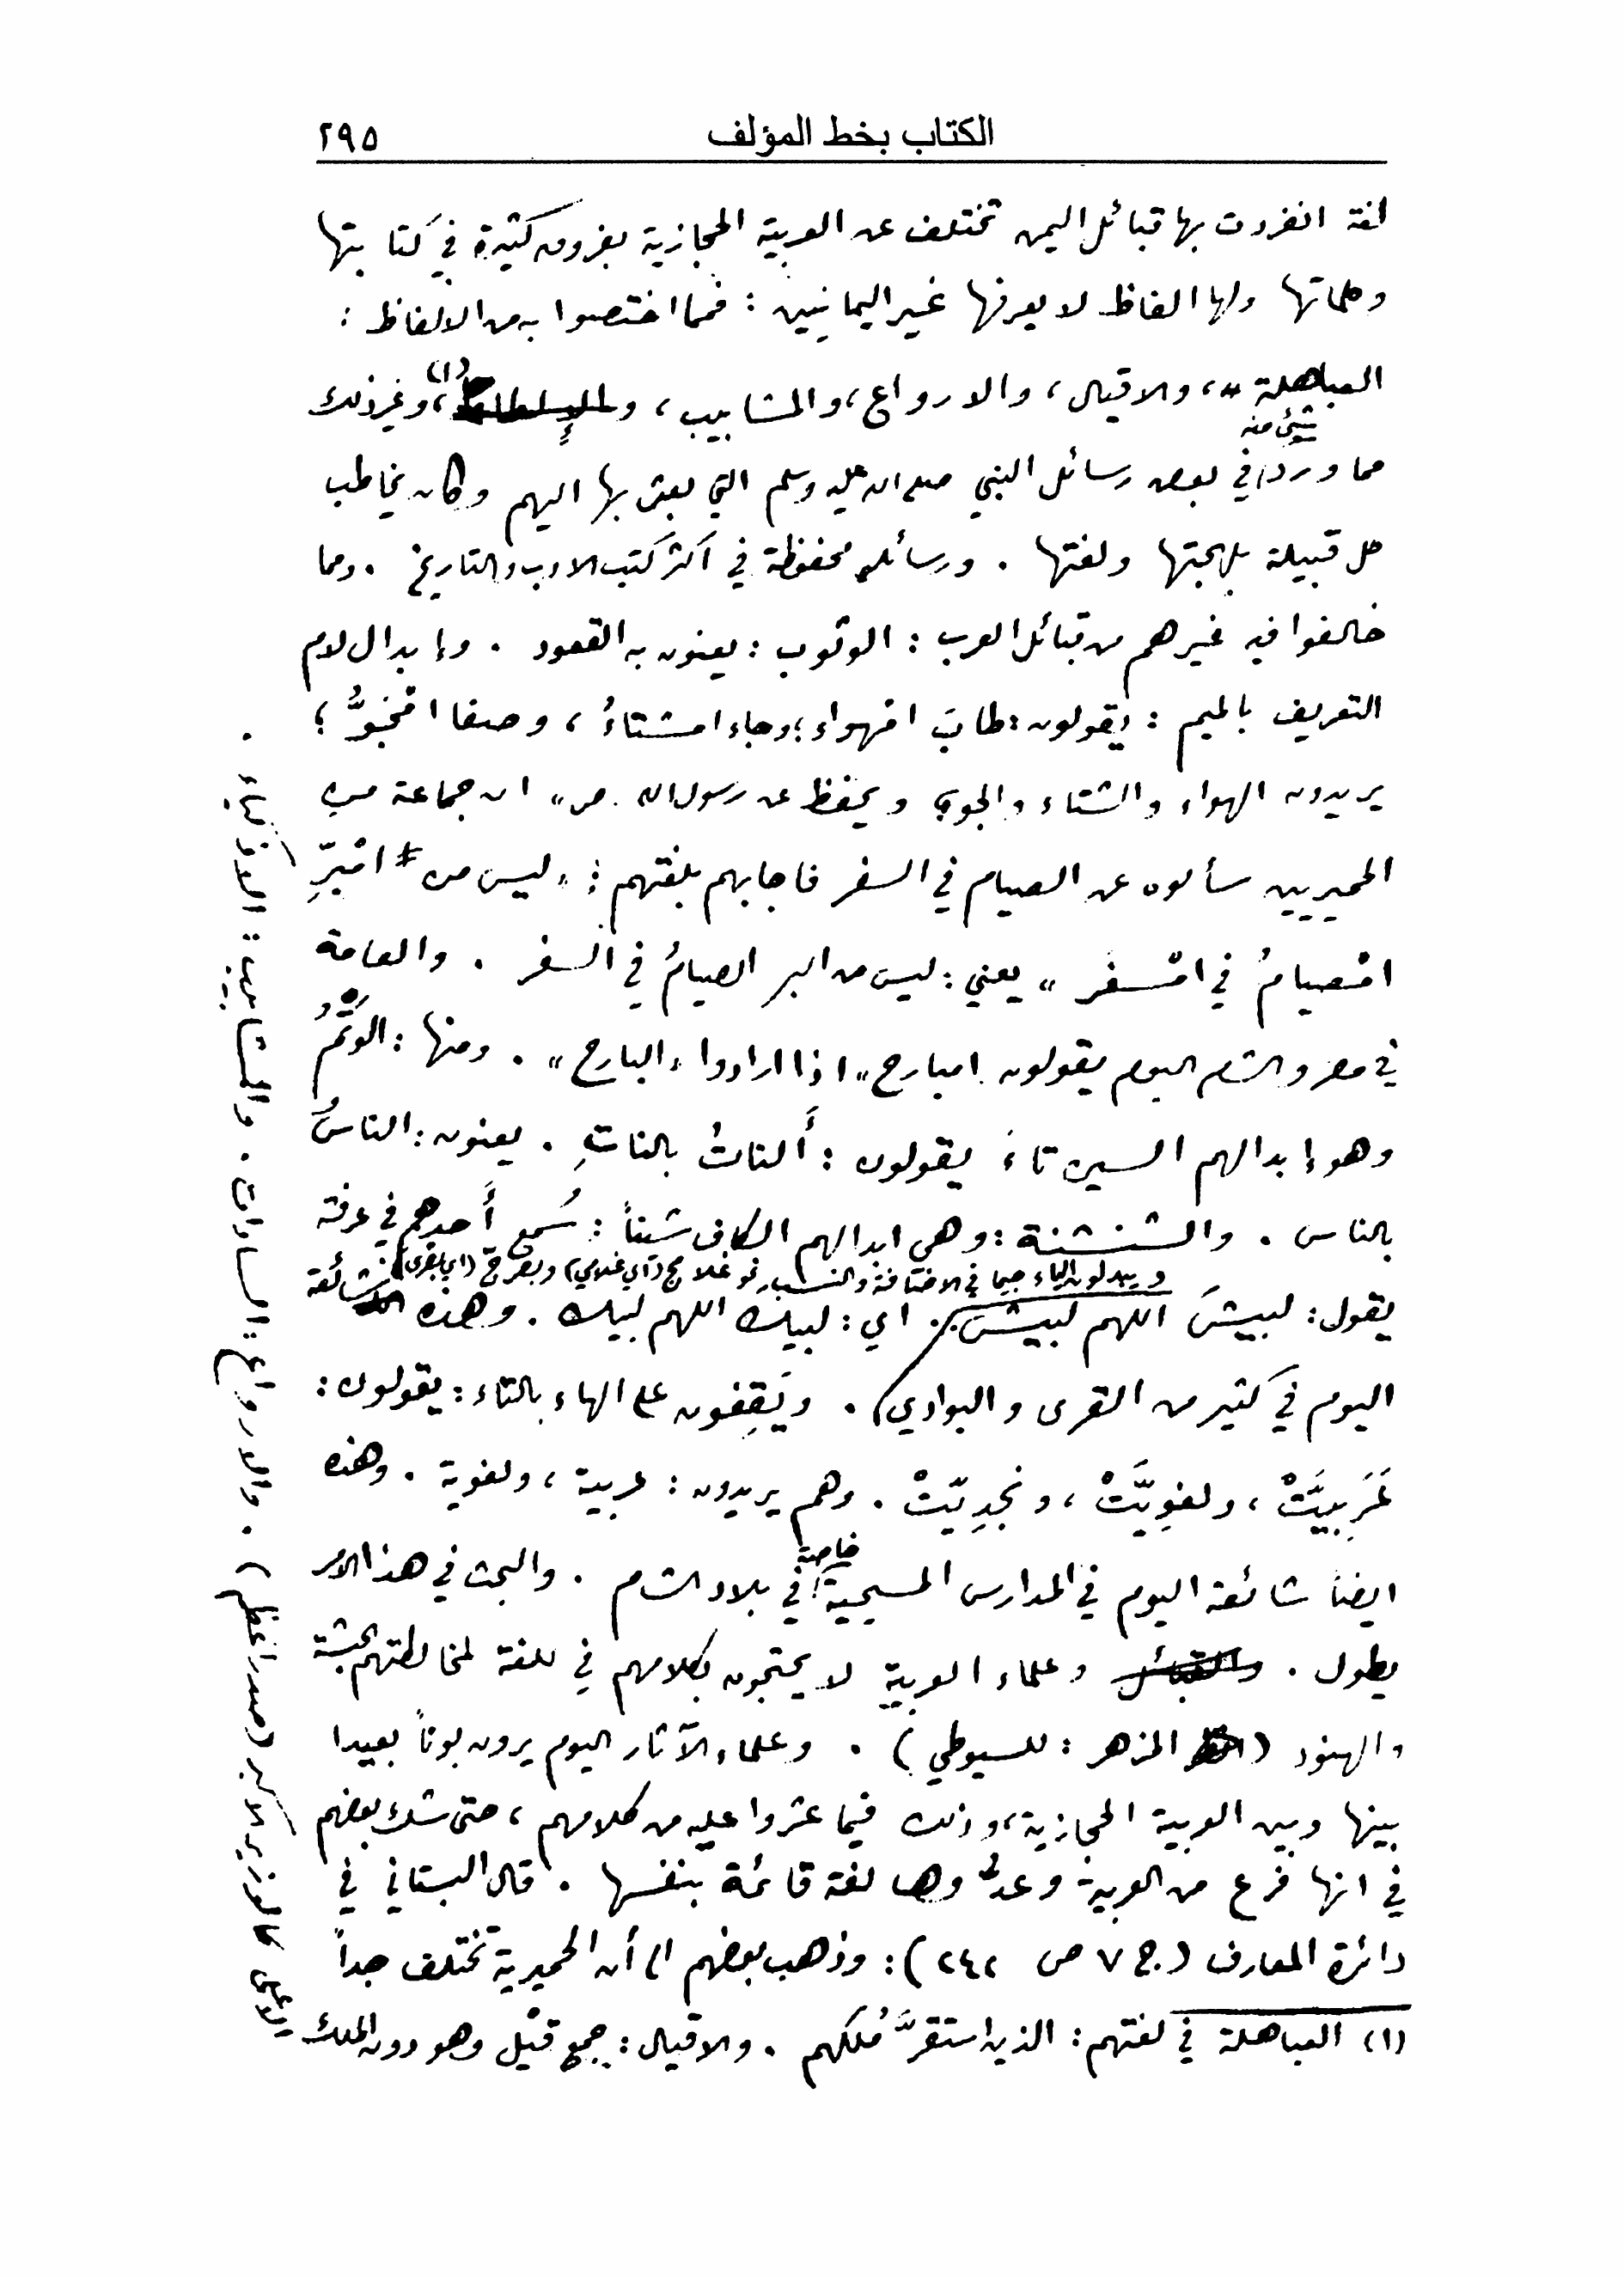 الكتاب بخط المؤلف ٢٩٥
لغة انفردت بها قبائل اليمن تختلف عن العربية الحجازية بفروق كثيرة في كتابتها
وكلماتها ولها الفاظ لا يعرفها غير اليمانيين : فمما اختصوا به من الالفاظ :
العباهلة ، والاقيال ، والارواع ، والمشابيب ، (١) ، وغير ذلك
شيء منه
مما ورد في بعض رسائل النبي صلى الله عليه وسلم التي بعث بها اليهم وكان يخاطب
كل قبيلة بلهجتها ولغتها . ورسائله محفوظة في اكثر كتب الادب والتاريخ . ومما
خالفوا فيه غيرهم من قبائل العرب : الوثوب : يعنون به القعود . وإبدال لام
التعريف بالميم : يقولون : طابَ امْهواء ؛ وجاء امشتاءُ ، وصفا امْجَوُّ ؛
يريدون الهواء والشتاء والجو ويحفظ عن رسول الله "ص" ان جماعة من
الحميريين سألوه عن الصيام في السفر فاجابهم بلغتهم : "ليس من امْبِرِّ
امْصيامُ في امْسفر" يعني : ليس من البر الصيامُ في السفر . والعامة
في مصر والشام اليوم يقولون "امبارح" اذا ارادوا "البارح" . ومنها : الوَتْمُ
وهو إبدالهم السين تاءً يقولون : أَلناتُ بالناتِ . يعنون : الناسُ
بالناس . والشنشنة : وهي ابدالهم الكاف شيناً : سُمع أحدهم في عرفة
ويبدلون الياء جيما في الاضافة والنسب نحو غلامج (اي غلامي) وبصرجّ (اي بصري)
يقول : لبيشَ اللهم لبيشَ . اي : لبيك اللهم لبيك . وهذه شائعة
اليوم في كثير من القرى والبوادي . ويَقِفون على الهاء بالتاء : يقولون :
عَرَبِيَّتْ ، ولغوِيَّتْ ، ونجدِيّتْ . وهم يريدون : عربية ، ولغوية . وهذه
ايضاً شائعة اليوم في المدارس المسيحية خاصة في بلاد الشام . والبحث في هذا الامر
يطول . وعلماء العربية لا يحتجون بكلامهم في اللغة لمخالطتهم الحبشة
والهنود ( المزهر : للسيوطي ) . وعلماء الآثار اليوم يرون بوناً بعيدا
بينها وبين العربية الحجازية ، وذلك فيما عثروا عليه من كلامهم ، حتى شك بعضهم
في انها فرع من العربية وعدوها لغة قائمة بنفسها . قال البستاني في
دائرة المعارف ( ج ٧ ص ٢٤٢ ) : وذهب بعضهم الى أن الحميرية تختلف جداً
(١) العباهلة في لغتهم : الذين استقرَّ مُلكهم . والاقيال : جمع قَيْل وهو دون الملك
الاعلى كالوزير الاكبر (صدر اعظم) . والارواع : السادات . والمشابيب : الاذكياء .